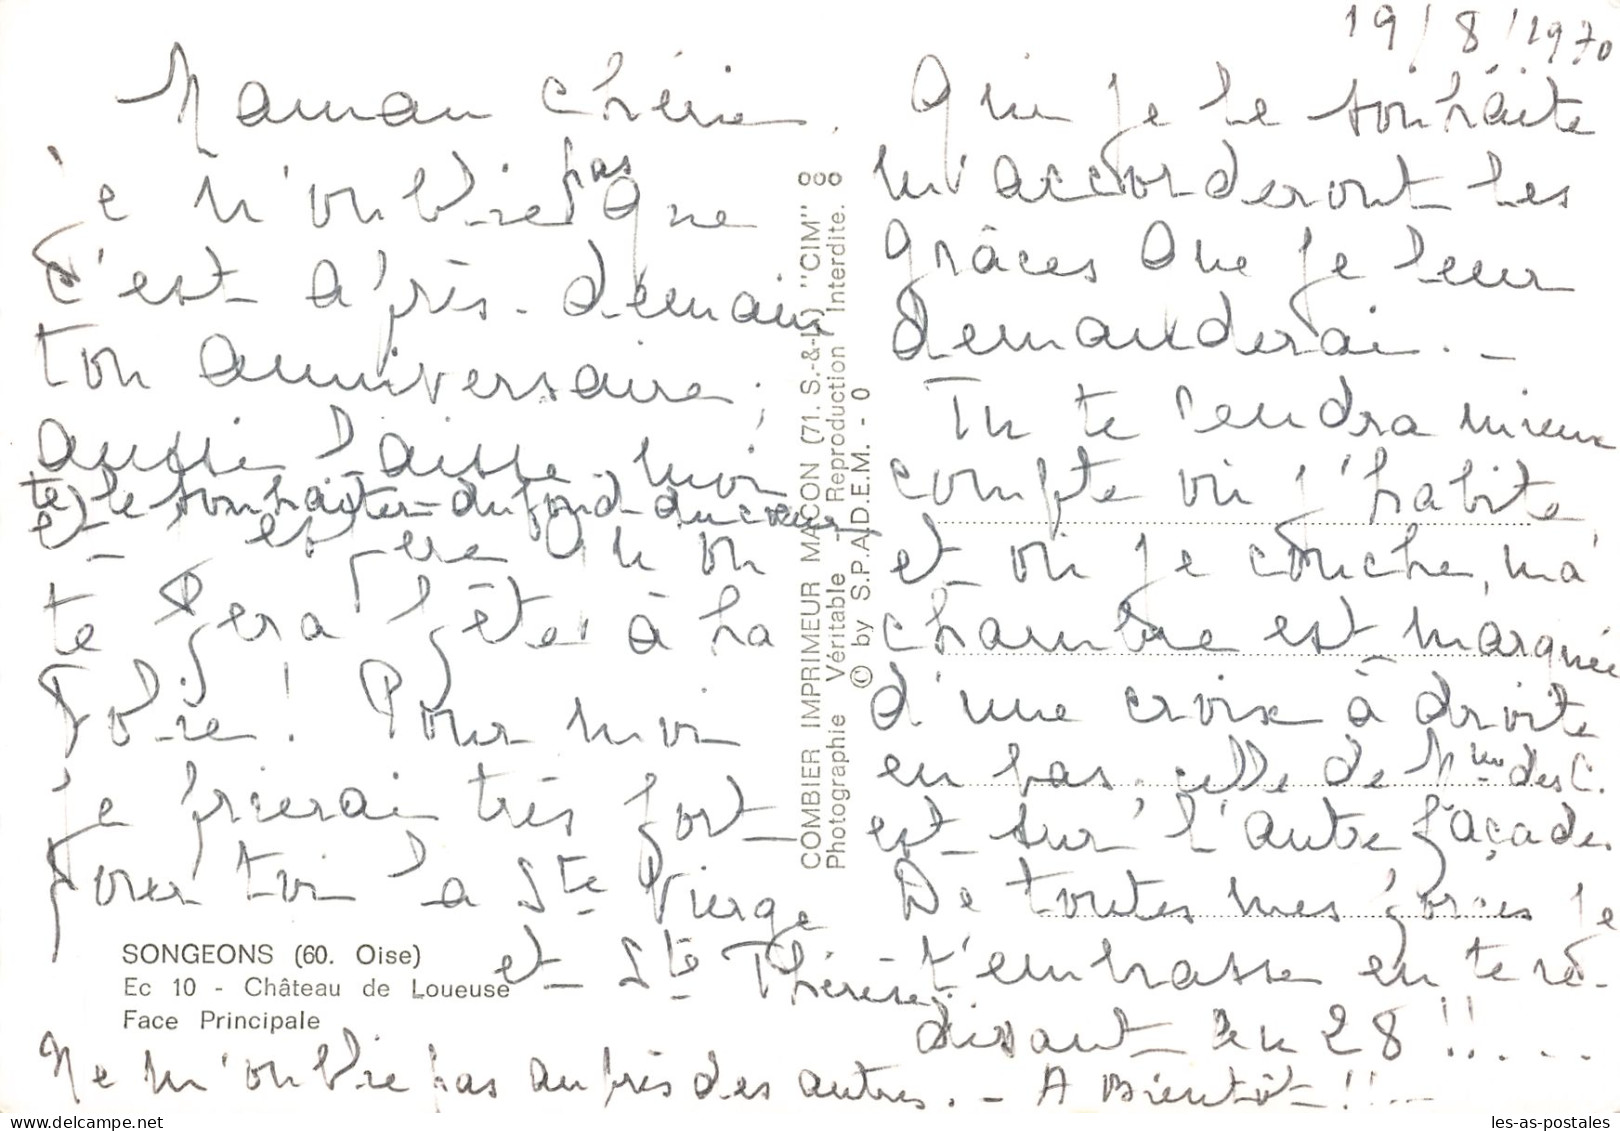 19/8/1970
Maman chérie,
Je n'oublie pas que
c'est après-demain
ton anniversaire ;
aussi laisse-moi
te le souhaiter du fond du cœur
et espère qu'on
te fera fête à la
Folie ! Pour moi
je prierai très fort
pour toi la Ste Vierge
et Ste Thérèse
Que je le souhaite
m'accorderont les
grâces que je leur
demanderai. -
Tu te rendra mieux
compte où j'habite
et où je couche, ma
chambre est marquée
d'une croix à droite
en bas, celle de Mme des C.
est sur l'autre façade.
De toutes mes forces je
t'embrasse en te re-
disant au 28 !! ...
Ne m'oublie pas auprès des autres. - A Bientôt !! ...
SONGEONS (60. Oise)
Ec 10 - Château de Loueuse
Face Principale
COMBIER IMPRIMEUR MACON (71. S.-&-L.) "CIM"
Photographie Véritable - Reproduction Interdite.
© by S.P.A.D.E.M. - 0
les-as-postales